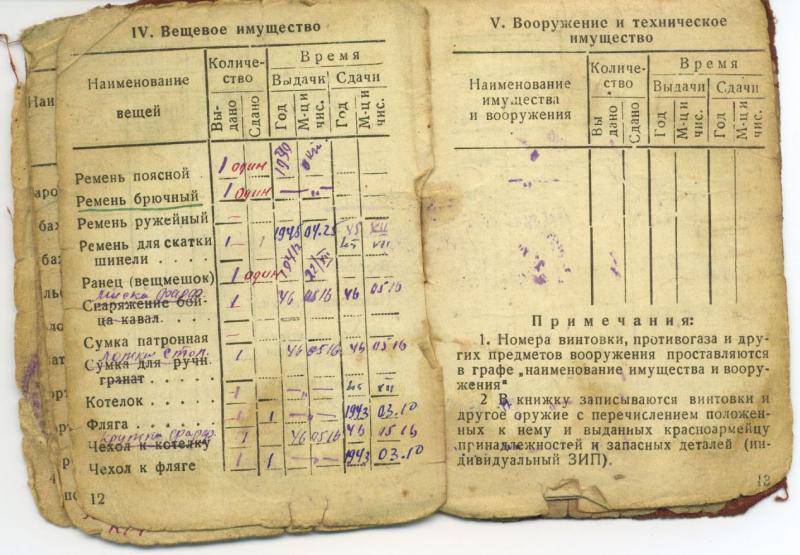 IV. Вещевое имущество
Наименование вещей
Количе-
ство
Время
Выдачи
Сдачи
Вы-
дано
Сдано
Год
М-ц и
чис.
Год
М-ц и
чис.
Ремень поясной 1 один
Ремень брючный 1 один
Ремень ружейный
Ремень для скатки 1 1945 04.25 45 XII
шинели 1941 22/XII 45 XII
Ранец (вещмешок) 1 один
миска фарф. 1 46 05 16 46 05 16
Снаряжение бой-
ца кавал.
Сумка патронная
ложка стол. 1 46 05 16 46 05 16
Сумка для ручн.
гранат
Котелок
Фляга 1 1 1943 03.10
кружка фарф. 1 46 05 16 46 05 16
Чехол к котелку
Чехол к фляге 1 1 1943 03.10
12
V. Вооружение и техническое
имущество
Наименование
имущества
и вооружения
Количе-
ство
Время
Выдачи
Сдачи
Вы
дано
Сдано
Год
М-ц и
чис.
Год
М-ц и
чис.
Примечания:
1. Номера винтовки, противогаза и дру-
гих предметов вооружения проставляются
в графе „наименование имущества и воору-
жения"
2 В книжку записываются винтовки и
другое оружие с перечислением положен-
ных к нему и выданных красноармейцу
принадлежностей и запасных деталей (ин-
дивидуальный ЗИП).
13